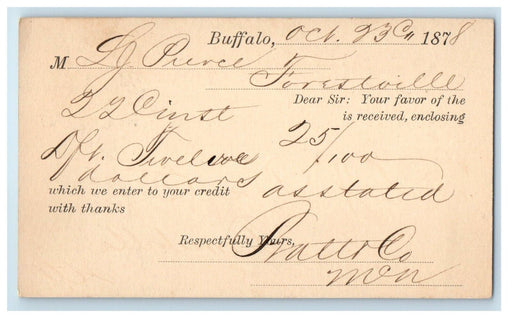 Buffalo, Oct. 23 1878
M L J Pierce
Forestville
Dear Sir: Your favor of the
22 inst is received, enclosing
Dft. Twelve 25/100
dollars
which we enter to your credit as stated
with thanks
Respectfully Yours, Pratt & Co